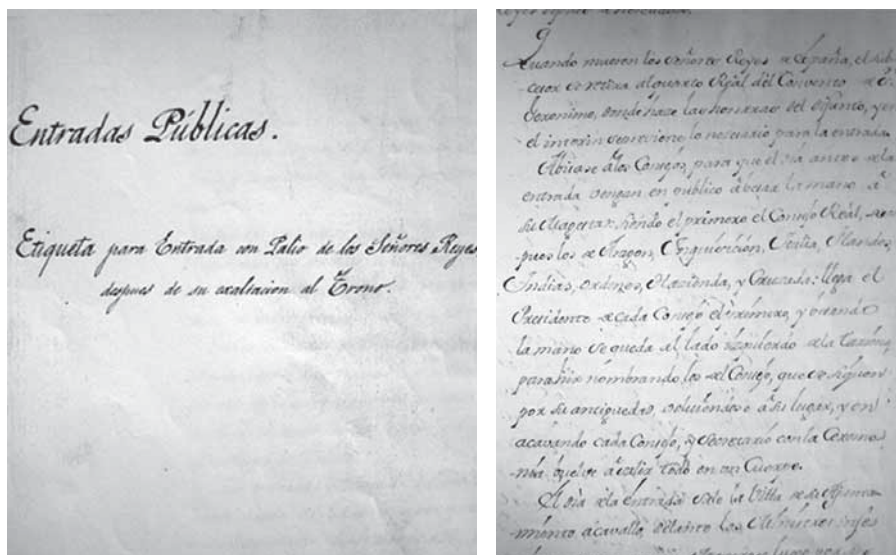 Entradas Públicas.
Etiqueta para Entrada con Palio de los Señores Reyes
despues de su exaltacion al Trono.
9
Quando mueren los Señores Reyes de España, el sub-
cesor se retira al quarto Rl. del Convento de Sn.
Geronimo, donde hace las honrras del difunto, y en
el interin se previene lo necesario para la entrada.
Abisase a los Consejos, para que el dia antes de la
entrada vengan en publico a besar la mano a
su Magestad, siendo el primero el Consejo Real, des-
pues los de Aragon, Inquisicion, Italia, Flandes,
Indias, ordenes, Hazienda, y Cruzada: llega el
Presidente de cada Consejo el primero, y besando
la mano se queda al lado izquierdo de la
para hir nombrando los del Consejo, que se siguen
por su antiguedad, volviendose a su lugar, y en
acavando cada Consejo, y Secretario con la Ceremo-
nia, buelve a salir todo en un Cuerpo.
El dia de la entrada sale la Villa de su Ayunta-
miento a cavallo, delante los